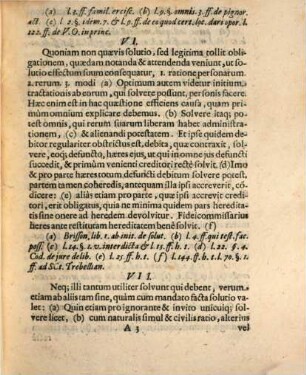 (a) l. 2. ff. famil. ercisc. (b) l. 9. §. omnis. 3. ff. de pignor.
act. (c) l. 2. §. idem. 7. & l. 9. ff. de eo quod cert. loc. dare opor. l.
122. ff. de V. O. in princ.
V I.
Quoniam non quævis solutio, sed legitima tollit obli-
gationem, quædam notanda & attendenda veniunt, ut so-
lutio effectum suum consequatur, 1. ratione personarum
2. rerum. 3. modi (a) Optimum autem videtur initium
tractationis ab eorum, qui solvere possunt, personis facere.
Hæc enim est in hac quæstione efficiens causa, quam pri-
mùm omnium explicare debemus. (b) Solvere itaq;
potest omnis, qui rerum suarum liberam habet administra-
tionem, (c) & alienandi potestatem. Et ipse quidem de-
bitor regulariter obstrictus est, debita, quæ contraxit, sol-
vere, eoq; defuncto, hæres ejus, ut qui in omne jus defuncti
succedit, & primùm venienti creditori rectè solvit. (d) Imò
& pro parte hæres totum defuncti debitum solvere potest,
partem tamen coheredis, antequam illa ipsi accreverit, cô-
dicere: (e) aliàs etiam pro parte, quæ ipsi accrevit, credi-
tori, erit obligatus, quia ne minima quidem pars heredita-
tis sine onere ad heredem devolvitur. Fideicommissarius
heres ante restitutam hereditatem benè solvit. (f)
(a) Brisson, lib. 1. ab init. de solut. (b) l. 4. ff. qui test. fac.
poss. (c) l. 14. §. 2. v. interdicta & l. 15. ff. h. t. (d) l. 22. ff. 4.
Cod. de jure delib. (e) l. 25. ff. h. t. (f) l. 144. ff. h. t. l. 70. §. 1.
ff. ad SCt. Trebellian.
V I I.
Neq; illi tantum utiliter solvunt qui debent, verum
etiam ab aliis tam sine, quàm cum mandato facta solutio va-
let: (a) Quin etiam pro ignorante & invito unicuiq; sol-
vere licet, (b) cum naturalis simul & civilis ratio, alterius
A 3 vel